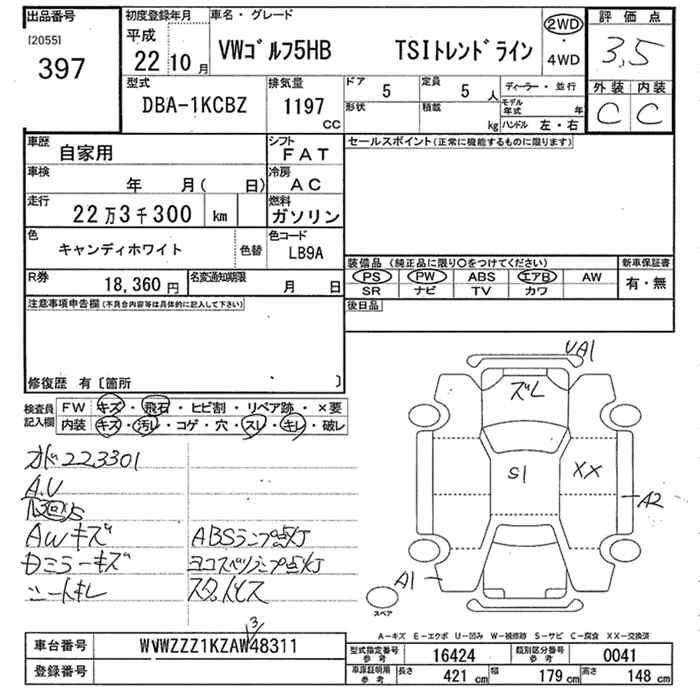 出品番号
[2055]
397
初度登録年月
平成
22 10 月
車名・グレード
VWゴルフ5HB TSIトレンドライン
2WD
・
4WD
評価点
3,5
外装 内装
C C
型式
DBA-1KCBZ
排気量
1197
CC
ドア 5
定員 5 人
形状
積載 kg
ディーラー・並行
モデル年式 年
ハンドル 左・右
車歴
自家用
シフト
FAT
セールスポイント(正常に機能するものに限ります)
車検
年 月( 日)
冷房
AC
走行
22万3千300 km
燃料
ガソリン
色
キャンディホワイト
色替
色コード
LB9A
装備品 (純正品に限り○をつけてください)
新車保証書
PS PW ABS エアB AW
有・無
SR ナビ TV カワ
R券
18,360 円
名変通知期限
月 日
後日品
注意事項申告欄(不具合内容等は具体的に記入して下さい)
修復歴 有〔箇所 〕
検査員
記入欄
FW キズ・飛石・ヒビ割・リペア跡・×要
内装 キズ・汚レ・コゲ・穴・スレ・キレ・破レ
オド223301
A.V
AWキズ
Dミラーキズ
シートキレ
ABSランプ点灯
ヨコスベリランプ点灯
スタットレス
UA1
ズレ
S1
XX
A2
A1
スペア
A－キズ E－エクボ U－凹み W－補修跡 S－サビ C－腐食 XX－交換済
車台番号
WVWZZZ1KZAW48311
3
登録番号
型式指定番号
参考
16424
類別区分番号
参考
0041
車庫証明用
参考
長さ 421 cm
幅 179 cm
高さ 148 cm